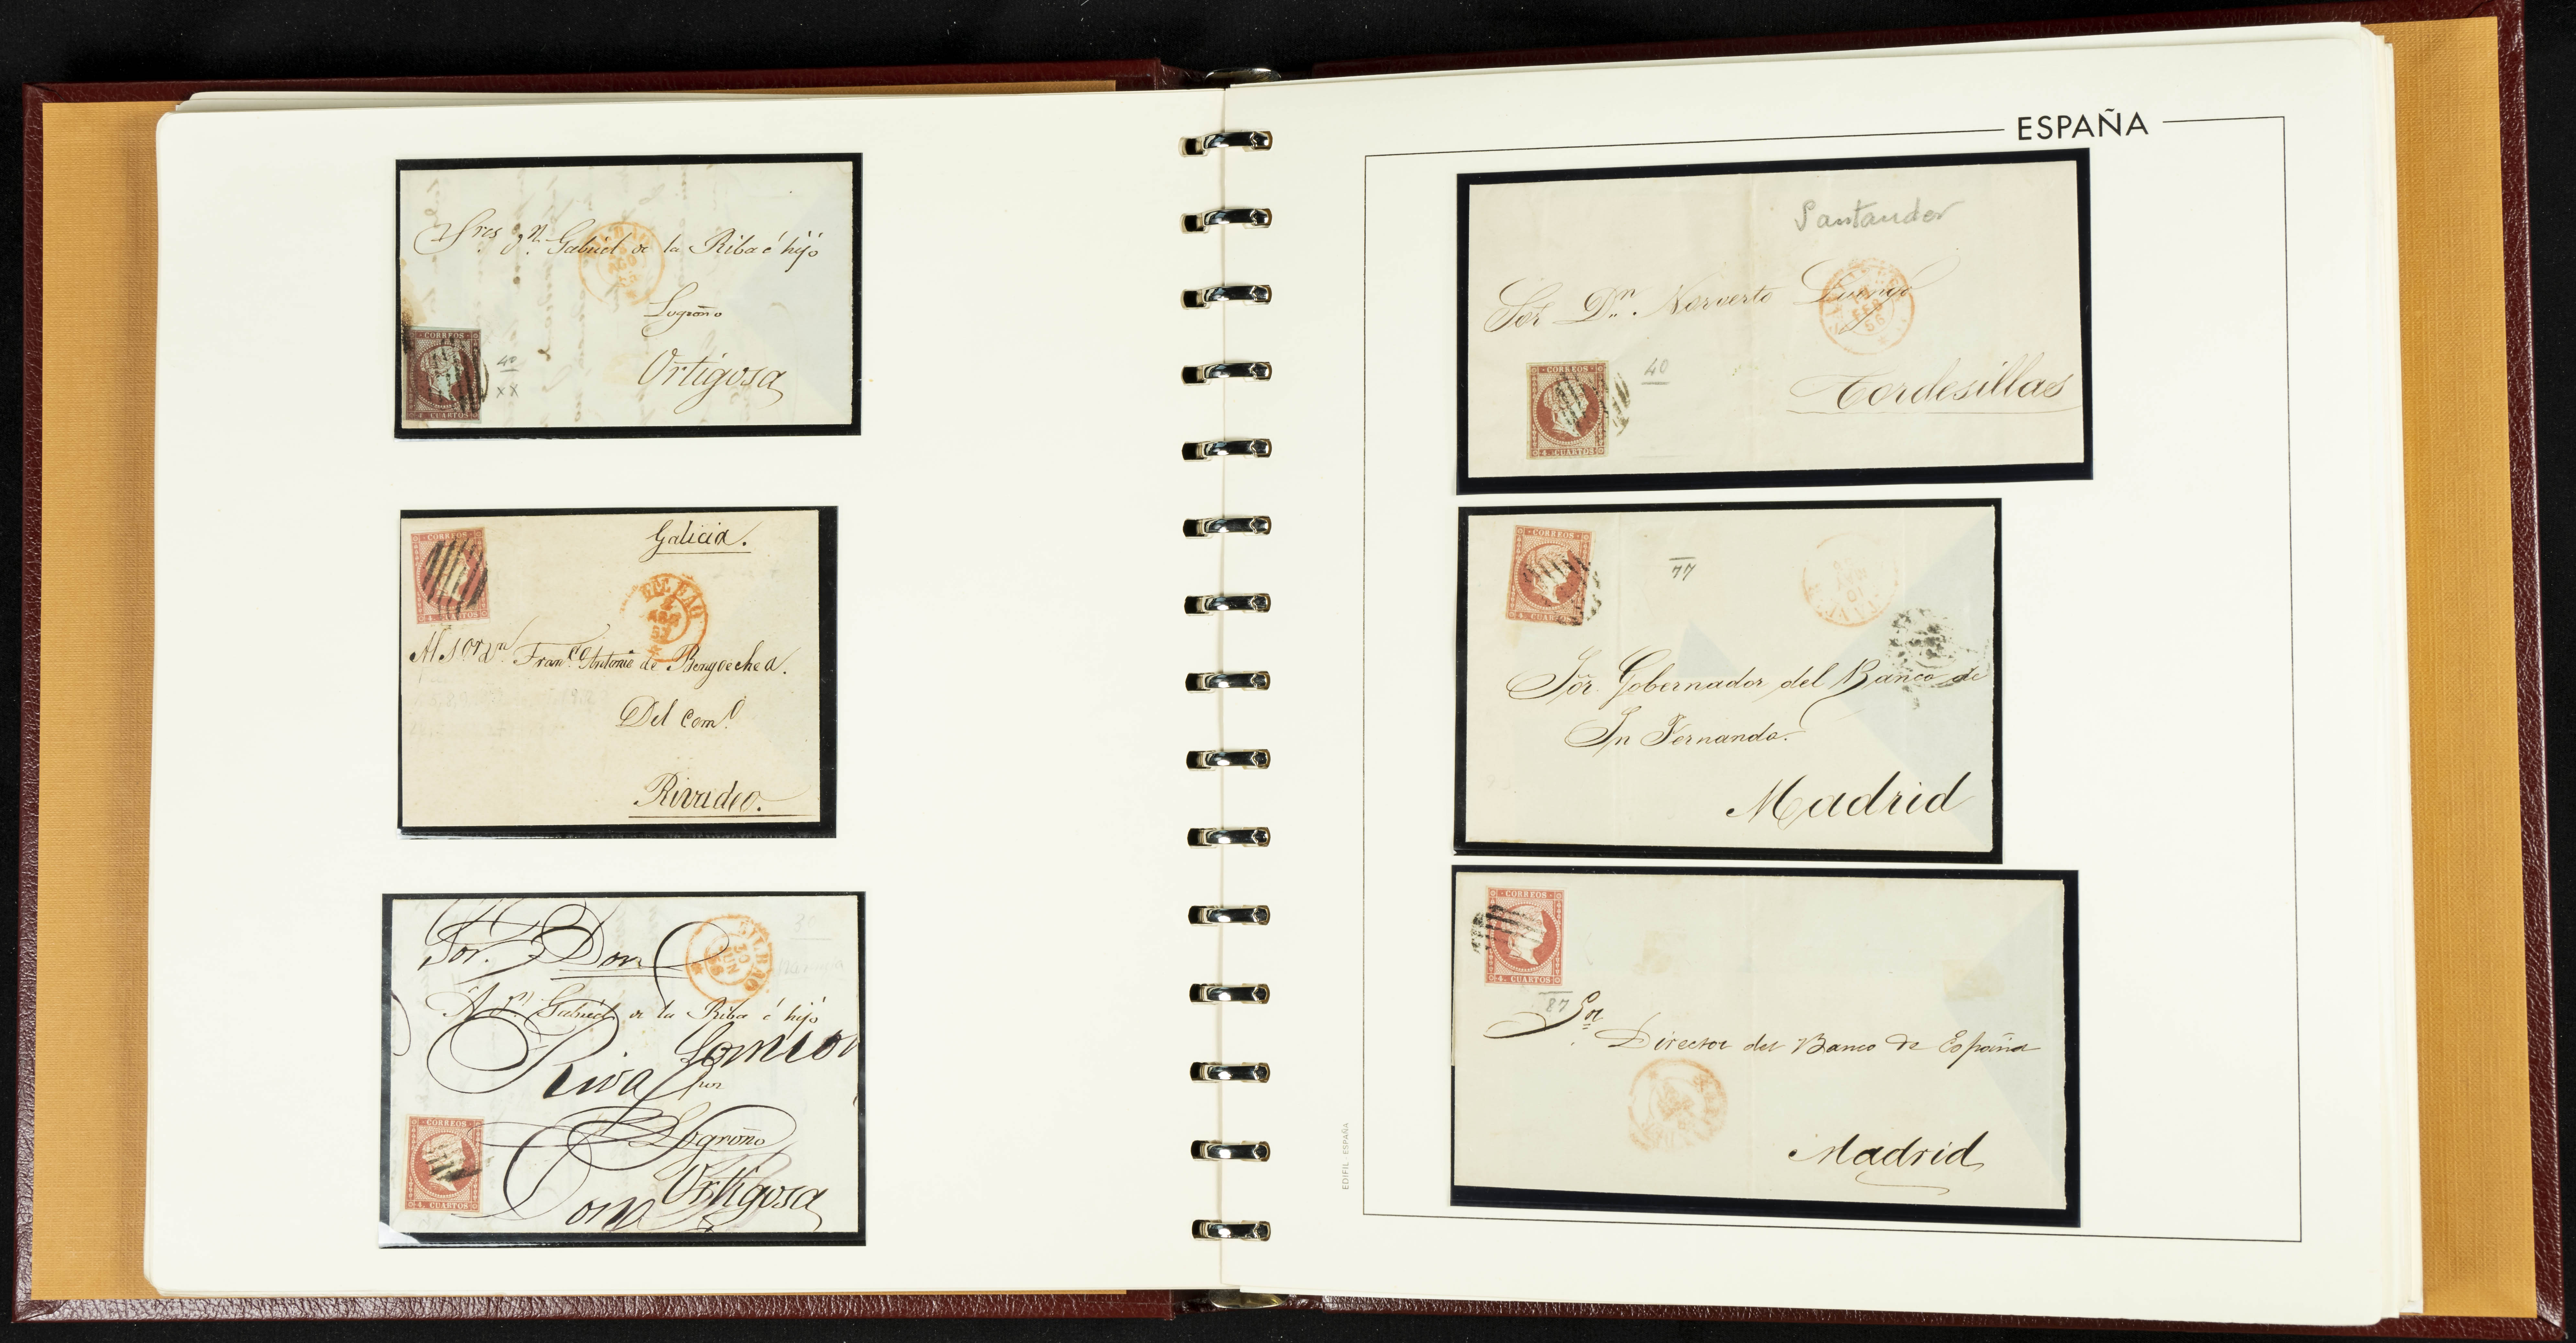 Sres Dn. Gabriel de la Riba é hijo
AGO
Logroño
Ortigosa
CORREOS
4 CUARTOS
40
XX
Galicia.
CORREOS
4. CUARTOS
BILBAO
2
57
Al Sor Dn Franco Antonio de Bengoechea.
Del Como
Rivadeo.
Sor. Don
BILBAO
30
JUN
58
30
A Dn. Gabriel de la Riba é hijo
Riva
por
Logroño
Ortigosa
Don
CORREOS
4. CUARTOS
ESPAÑA
Santander
Sor Dn. Norverto
FEB
56
Tordesillas
CORREOS
4. CUARTOS
40
CORREOS
4. CUARTOS
77
Sor. Gobernador del Banco de
Sn Fernando.
Madrid
CORREOS
4. CUARTOS
87
Sor
Director del Banco de España
Madrid
EDIFIL ESPAÑA